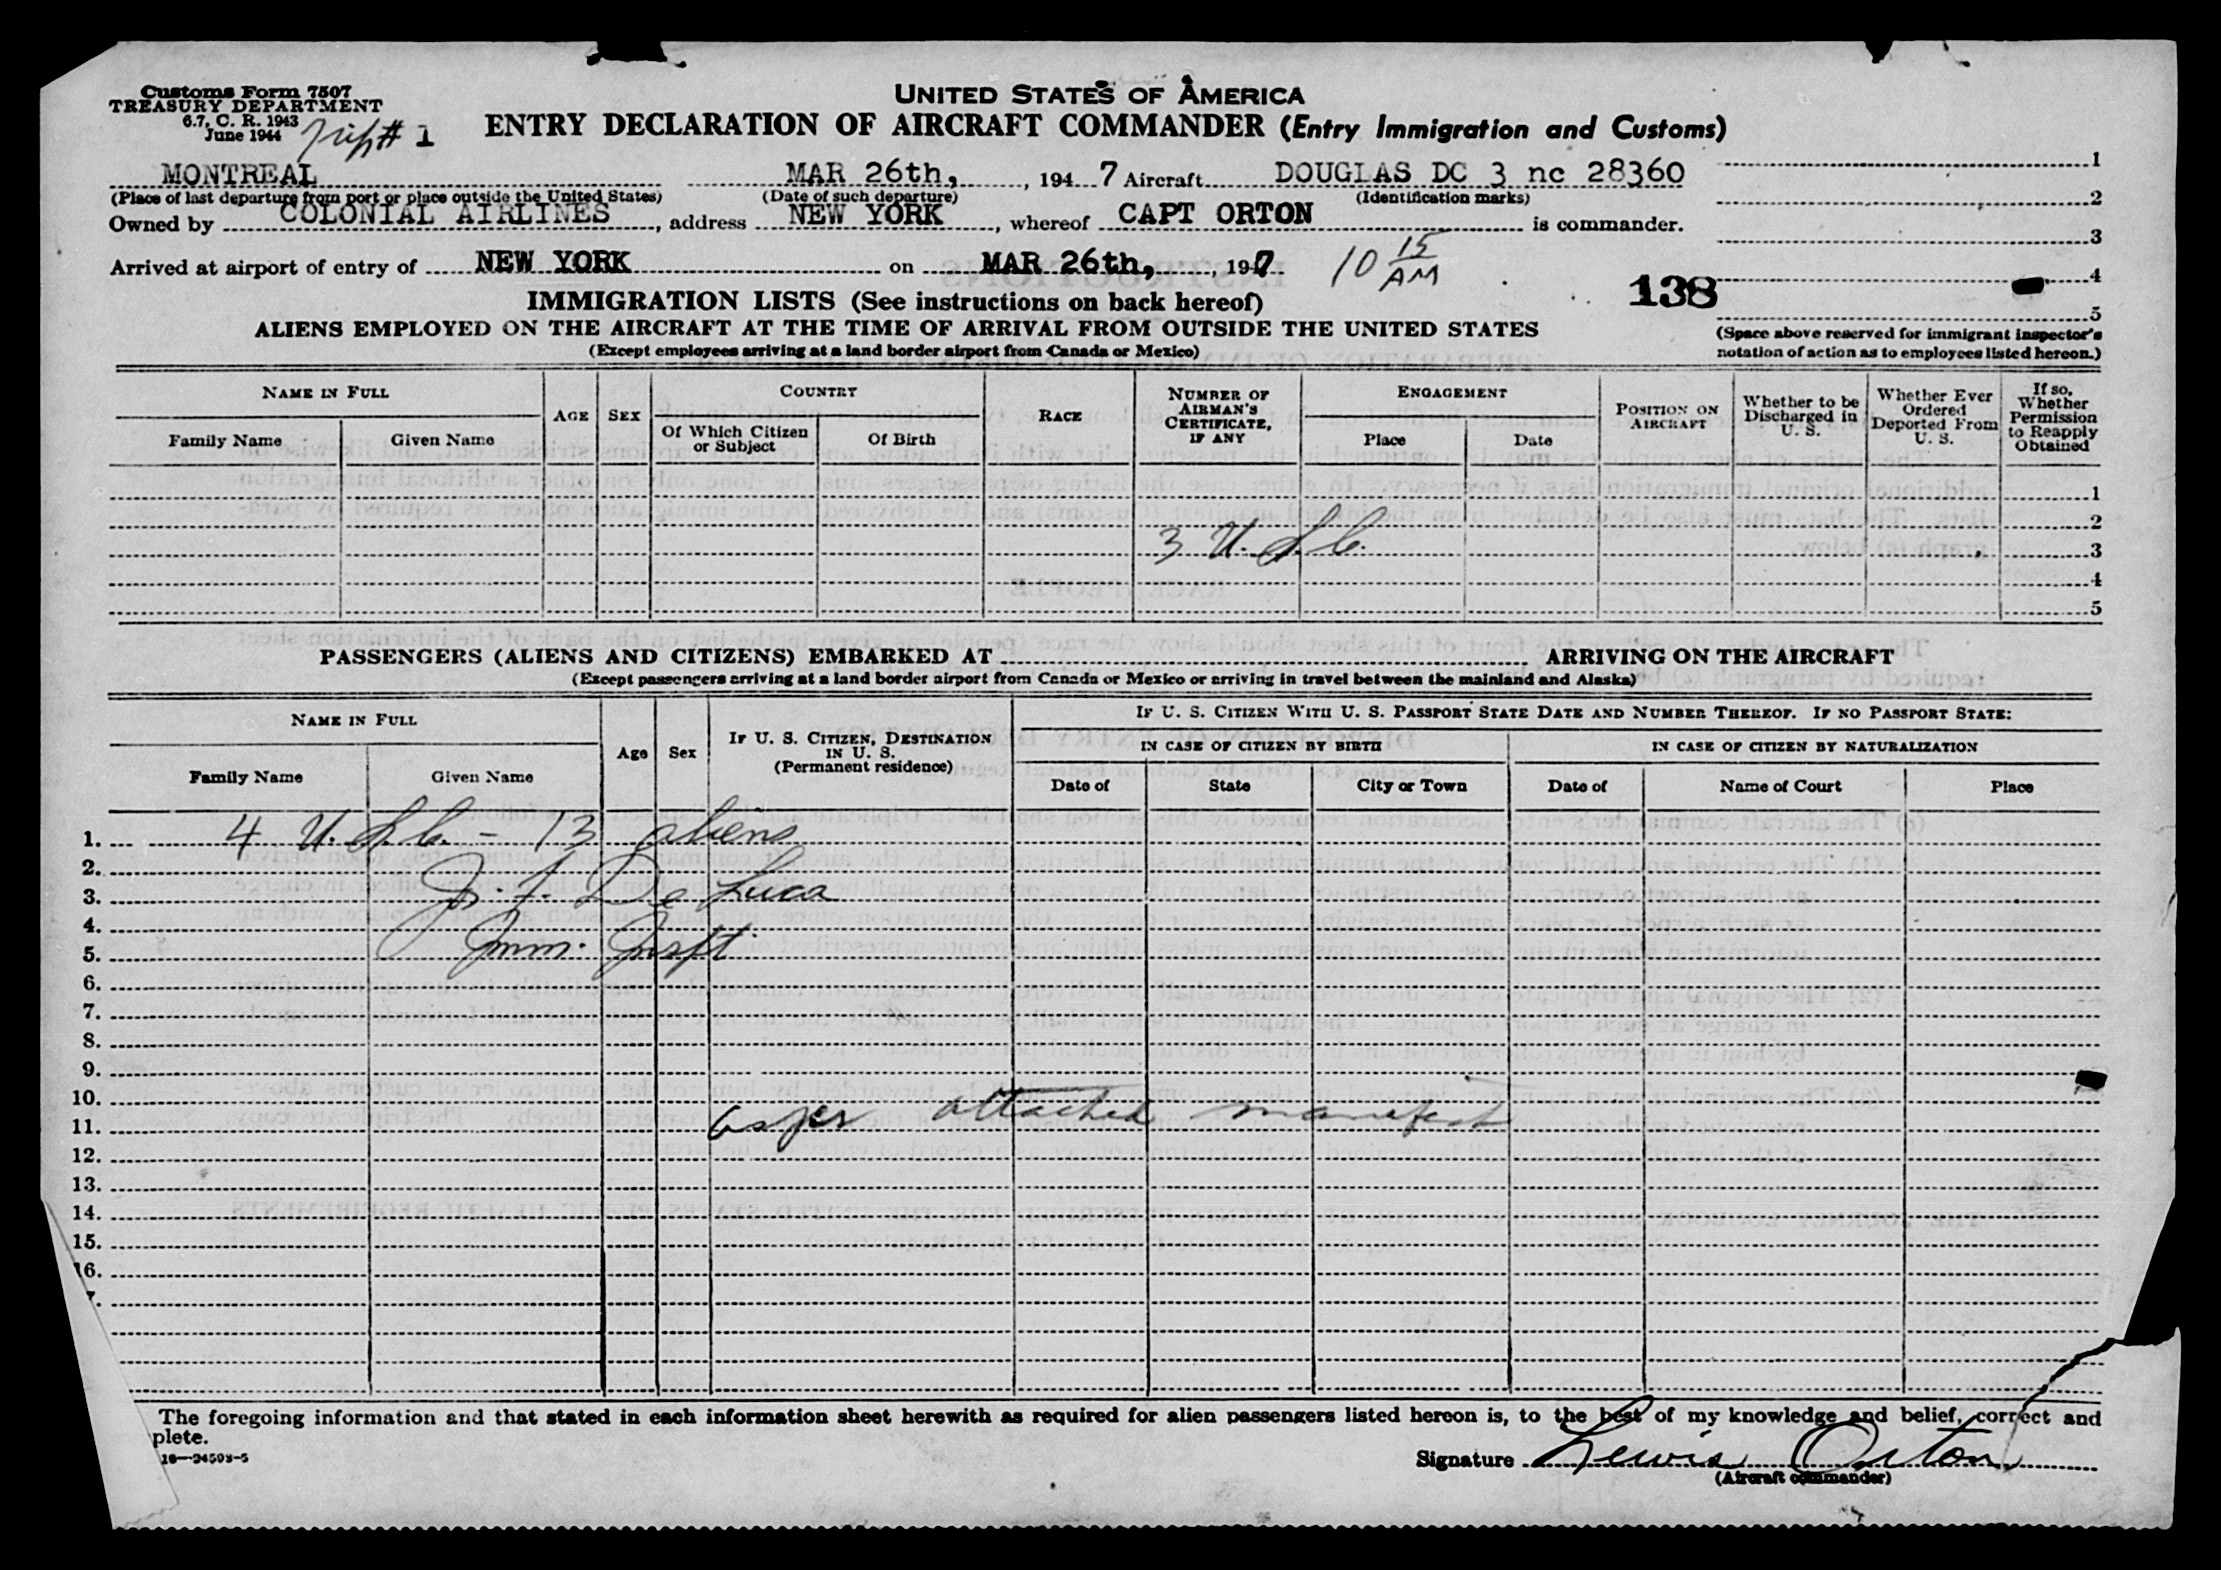 Customs Form 7507
TREASURY DEPARTMENT
6.7, C. R. 1943
June 1944
Trip # 1
UNITED STATES OF AMERICA
ENTRY DECLARATION OF AIRCRAFT COMMANDER (Entry Immigration and Customs)
MONTREAL MAR 26th, , 194 7 Aircraft DOUGLAS DC 3 nc 28360
(Place of last departure from port or place outside the United States) (Date of such departure) (Identification marks)
Owned by COLONIAL AIRLINES , address NEW YORK , whereof CAPT ORTON is commander.
Arrived at airport of entry of NEW YORK on MAR 26th, , 1947 10 15 AM
1
2
3
4
5
138
(Space above reserved for immigrant inspector's
notation of action as to employees listed hereon.)
IMMIGRATION LISTS (See instructions on back hereof)
ALIENS EMPLOYED ON THE AIRCRAFT AT THE TIME OF ARRIVAL FROM OUTSIDE THE UNITED STATES
(Except employees arriving at a land border airport from Canada or Mexico)
NAME IN FULL
Family Name
Given Name
AGE
SEX
COUNTRY
Of Which Citizen
or Subject
Of Birth
RACE
NUMBER OF
AIRMAN'S
CERTIFICATE,
IF ANY
ENGAGEMENT
Place
Date
POSITION ON
AIRCRAFT
Whether to be
Discharged in
U. S.
Whether Ever
Ordered
Deported From
U. S.
If so,
Whether
Permission
to Reapply
Obtained
1
2
3 U.S.C.
3
4
5
PASSENGERS (ALIENS AND CITIZENS) EMBARKED AT ARRIVING ON THE AIRCRAFT
(Except passengers arriving at a land border airport from Canada or Mexico or arriving in travel between the mainland and Alaska)
NAME IN FULL
Family Name
Given Name
Age
Sex
IF U. S. CITIZEN, DESTINATION
IN U. S.
(Permanent residence)
IF U. S. CITIZEN WITH U. S. PASSPORT STATE DATE AND NUMBER THEREOF. IF NO PASSPORT STATE:
IN CASE OF CITIZEN BY BIRTH
IN CASE OF CITIZEN BY NATURALIZATION
Date of
State
City or Town
Date of
Name of Court
Place
1. 4 U.S.C. - 13 aliens
2.
3. J. F. De Luca
4.
5. Imm. Inspt.
6.
7.
8.
9.
10.
11. as per attached manifest
12.
13.
14.
15.
16.
The foregoing information and that stated in each information sheet herewith as required for alien passengers listed hereon is, to the best of my knowledge and belief, correct and
plete.
16—34598-5
Signature Lewis Orton
(Aircraft commander)